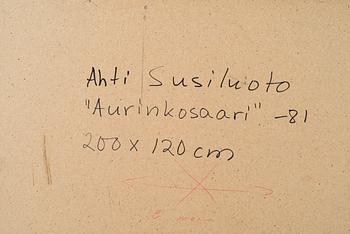 Ahti Susiluoto
"Aurinkosaari" -81
200 x 120 cm